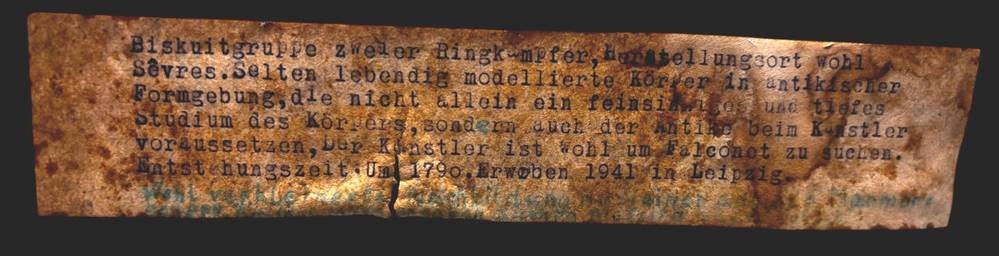 Biskuitgruppe zweier Ringkämpfer, Herstellungsort wohl
Sêvres. Selten lebendig modellierte Körper in antikischer
Formgebung, die nicht allein ein feinsinniges und tiefes
Studium des Körpers, sondern auch der Antike beim Künstler
voraussetzen, Der Künstler ist wohl um Falconet zu suchen.
Entstehungszeit. Um 1790. Erworben 1941 in Leipzig.
Wohl